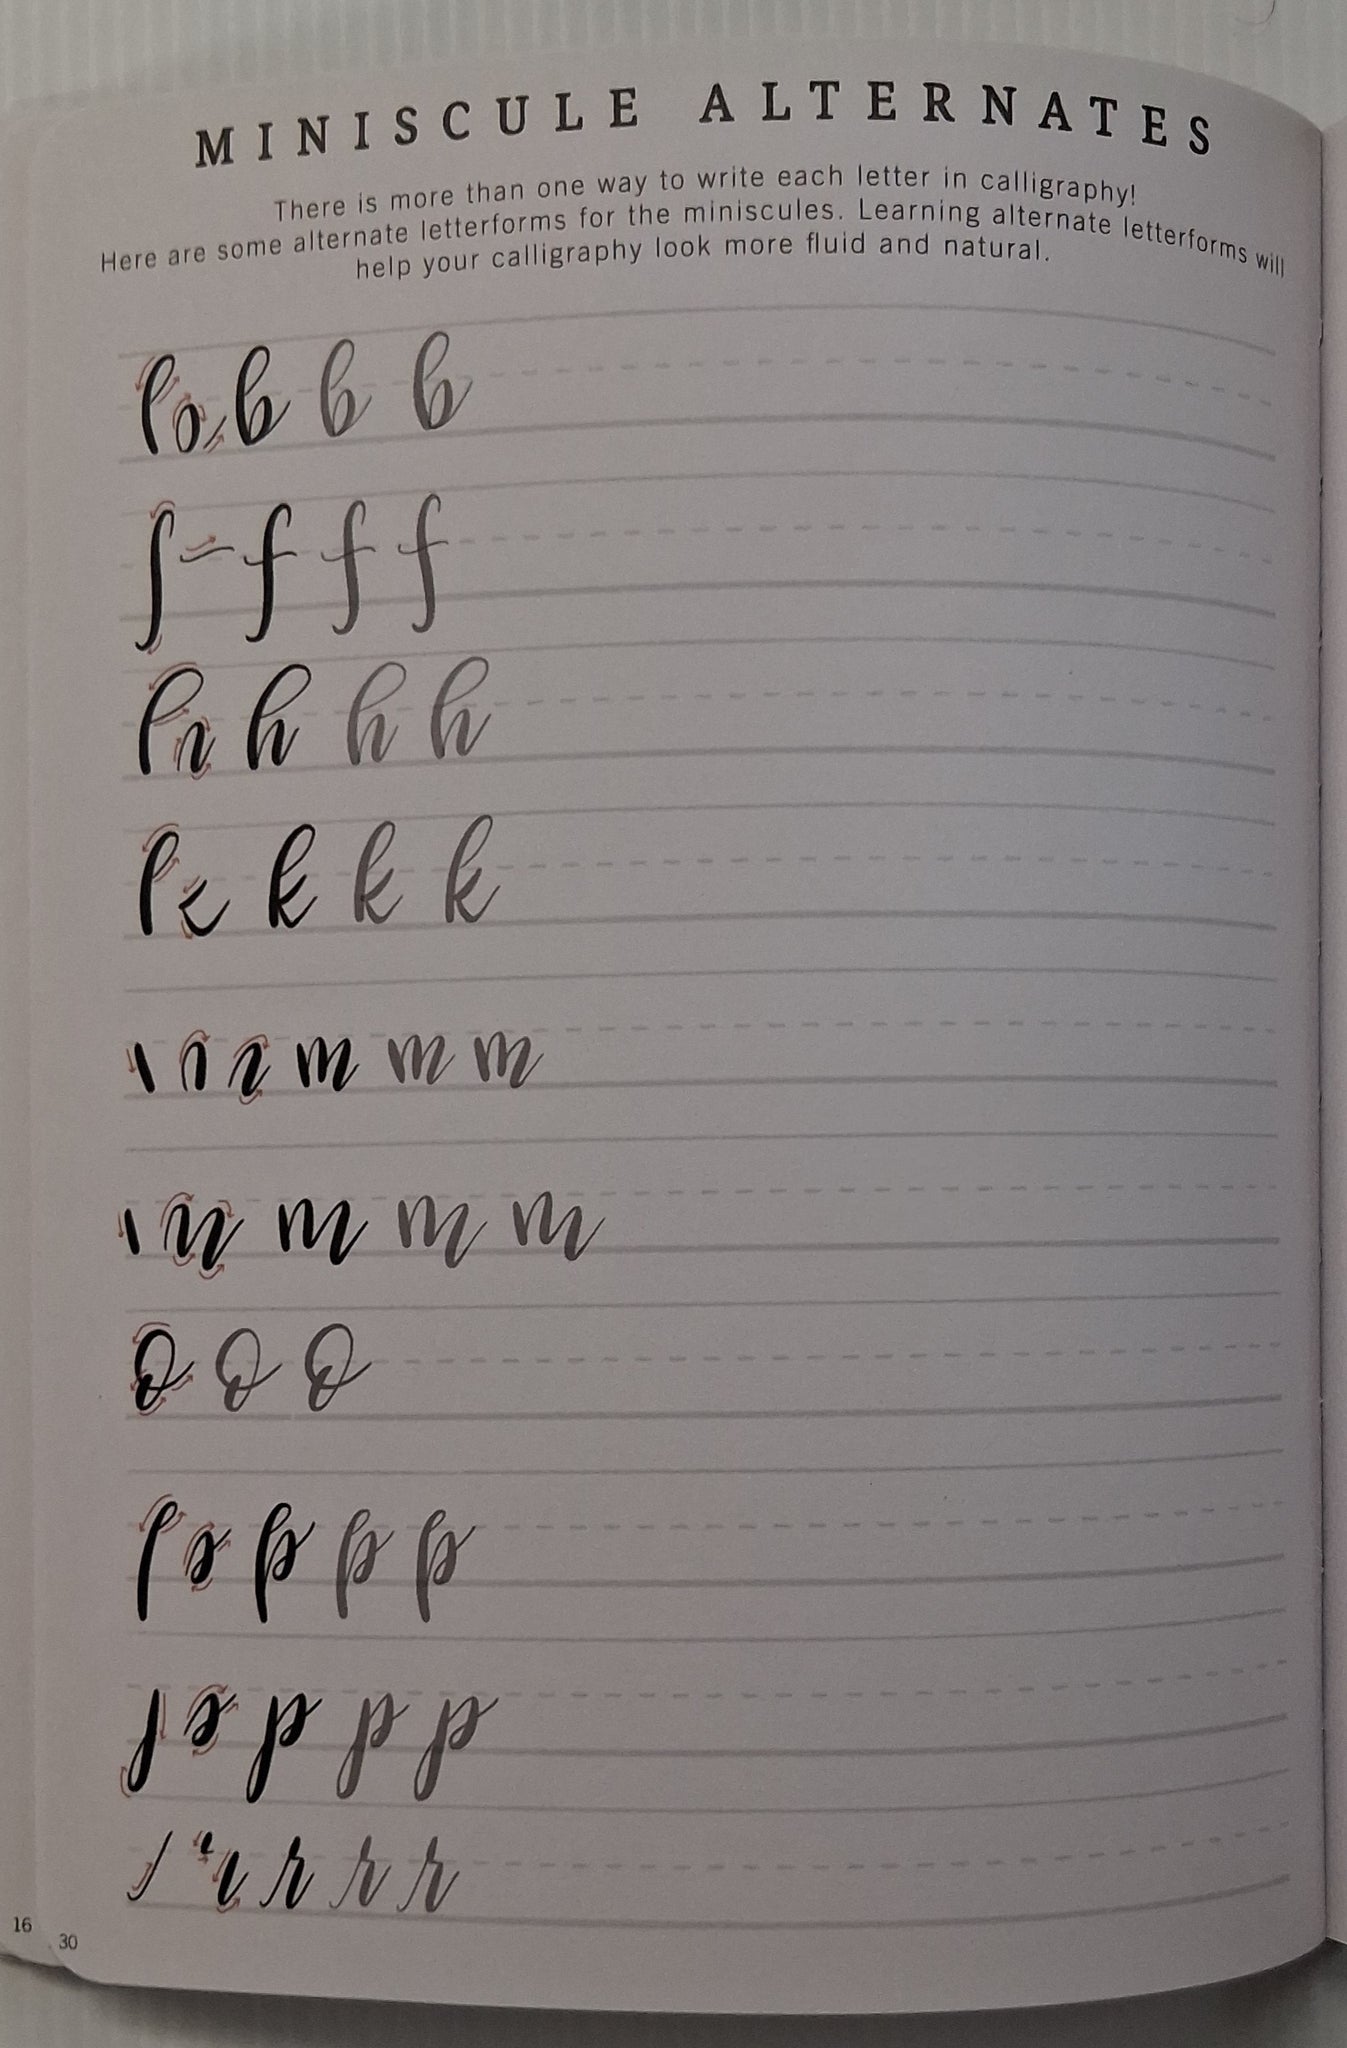 MINISCULE ALTERNATES
There is more than one way to write each letter in calligraphy!
Here are some alternate letterforms for the miniscules. Learning alternate letterforms will
help your calligraphy look more fluid and natural.
b b b
f f f
h h h
k k k
m m m
m m m
o o o
p p p
p p p
r r r
16
30